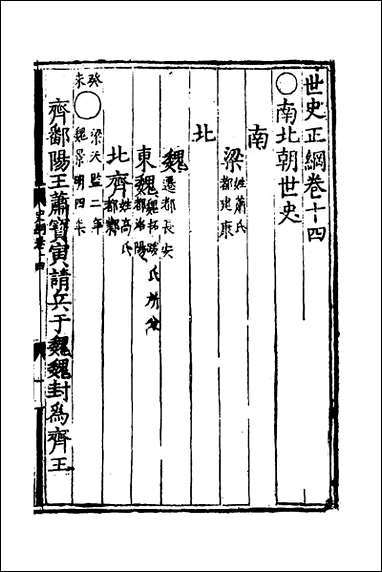 世史正綱卷十四
○南北朝世史
南
梁 姓蕭氏 都建康
北
魏 遷都長安
東魏 魏拓跋氏所分 都洛陽
北齊 姓高氏 都鄴
癸未
○ 梁天監二年 魏景明四年
齊鄱陽王蕭寶寅請兵于魏魏封爲齊王